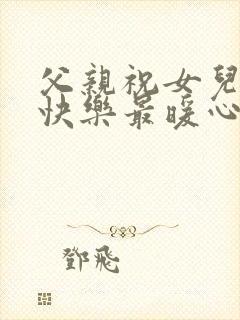 父親祝女兒
快樂最暖心
鄧飛